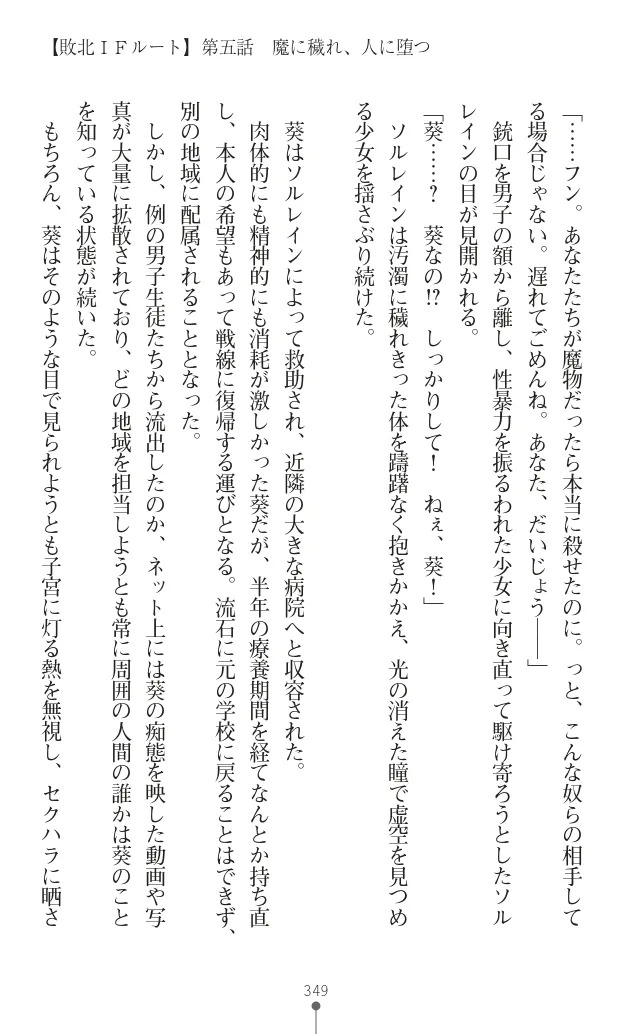 【敗北ＩＦルート】第五話　魔に穢れ、人に堕つ
「……フン。あなたたちが魔物だったら本当に殺せたのに。っと、こんな奴らの相手して
る場合じゃない。遅れてごめんね。あなた、だいじょう――」
　銃口を男子の額から離し、性暴力を振るわれた少女に向き直って駆け寄ろうとしたソル
レインの目が見開かれる。
「葵……？　葵なの!?　しっかりして！　ねぇ、葵！」
　ソルレインは汚濁に穢れきった体を躊躇なく抱きかかえ、光の消えた瞳で虚空を見つめ
る少女を揺さぶり続けた。
　葵はソルレインによって救助され、近隣の大きな病院へと収容された。
　肉体的にも精神的にも消耗が激しかった葵だが、半年の療養期間を経てなんとか持ち直
し、本人の希望もあって戦線に復帰する運びとなる。流石に元の学校に戻ることはできず、
別の地域に配属されることとなった。
　しかし、例の男子生徒たちから流出したのか、ネット上には葵の痴態を映した動画や写
真が大量に拡散されており、どの地域を担当しようとも常に周囲の人間の誰かは葵のこと
を知っている状態が続いた。
　もちろん、葵はそのような目で見られようとも子宮に灯る熱を無視し、セクハラに晒さ
349